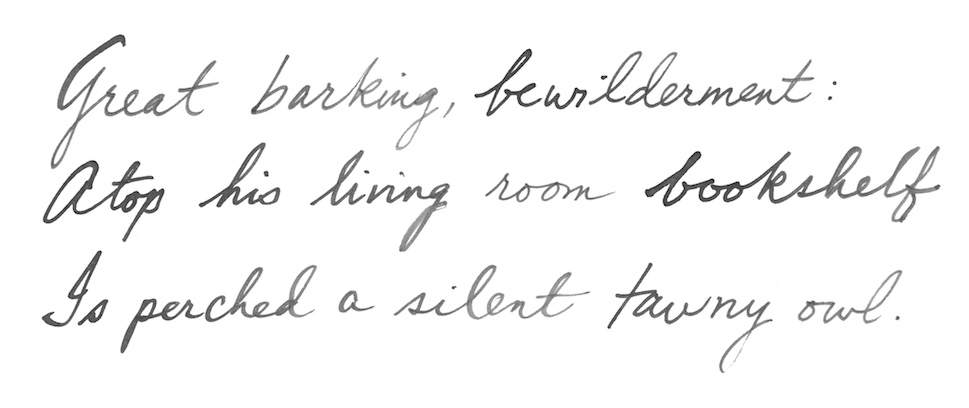 Great barking, bewilderment:
Atop his living room bookshelf
Is perched a silent tawny owl.